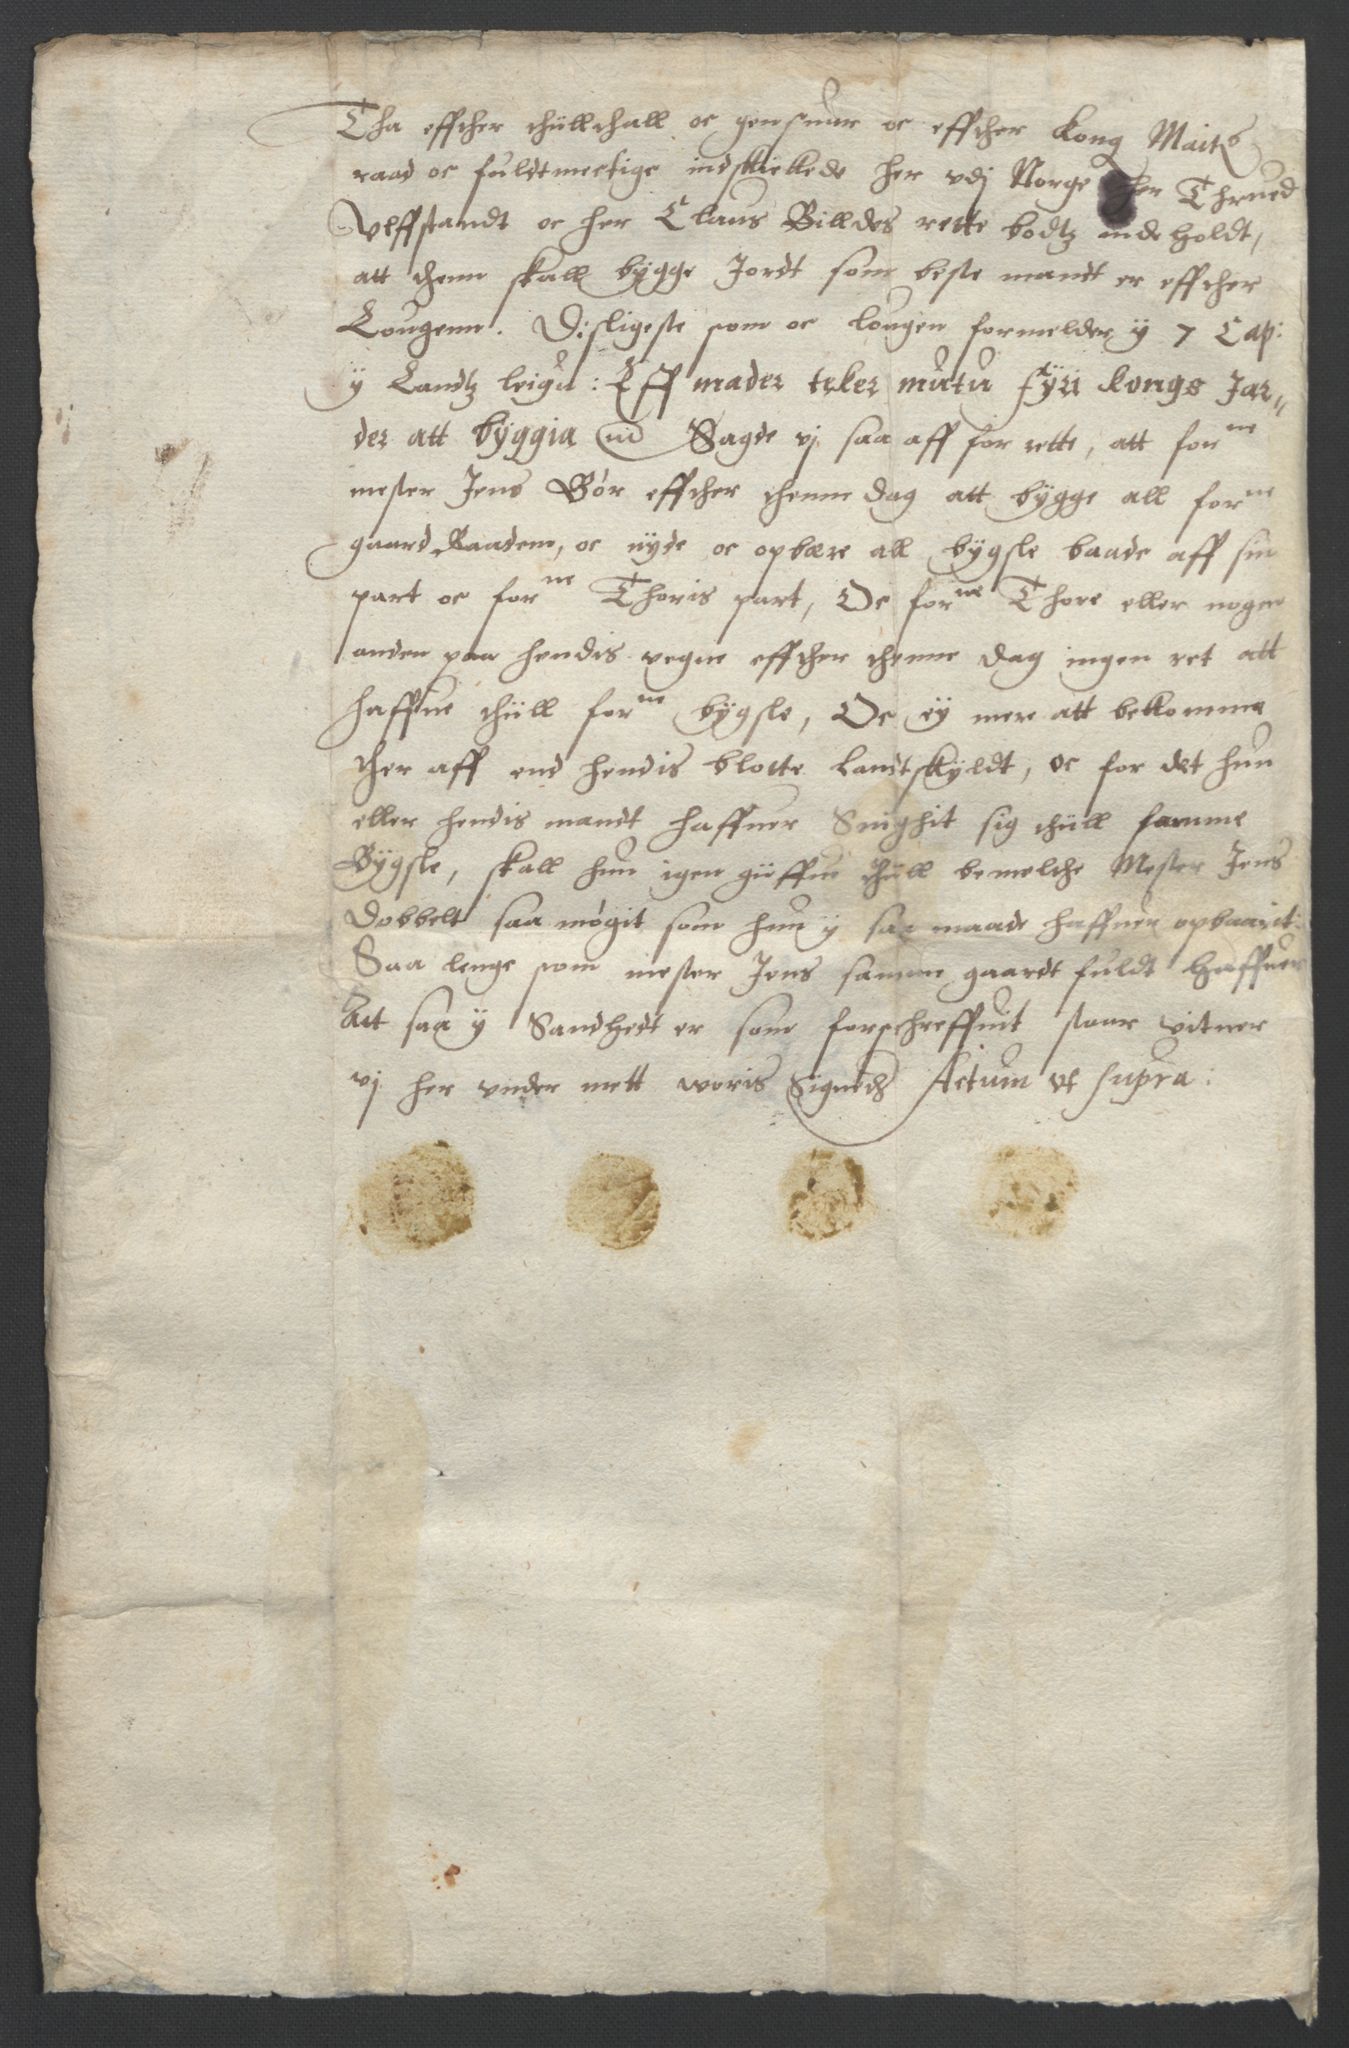 Tha effther thiillthall oc gensuar oc effther kong Maits
raad oc fuldtmectige indskickede her vdj Norge her Thrued
Vlffstandt oc her Claus Billdes rette bodtz indeholdt,
att thenn skall bÿgge Jordt som beste mandt er effther
Lougenn. Disligeste som oc lougen formelder ÿ 7 Cap:
ÿ Landtz leigu: Eff mader teker mutu fÿri kongs Jar„
der att bÿggia Sagde vj saa aff for rette, att forne
mester Jens Bør effther thenne dag att bÿgge all forne
gaard Raadem, oc nÿde oc opbære all bÿgsle baade aff sin
part oc forne Thoris part, Oc forne Thore eller nogen
anden paa hendis vegne effther thenne dag ingen ret att
haffue thiill forne bÿgsle, Oc eÿ mere att bekomme
ther aff end hendis blotte landtskÿldt, oc for det hun
eller hendis mandt haffuer Snighit sig thiill samme
Bÿgsle, skall hun igen giiffue thiill bemelthe Mester Jens
Dobbelt saa møgit som hun ÿ saa maade haffuer opbaarit:
Saa lenge som mester Jens samme gaardt fuldt haffuer
Att saa ÿ Sandhedt er som forschreffuit staar vitner
vj her vnder mett woris Signeth Actum vt supra: